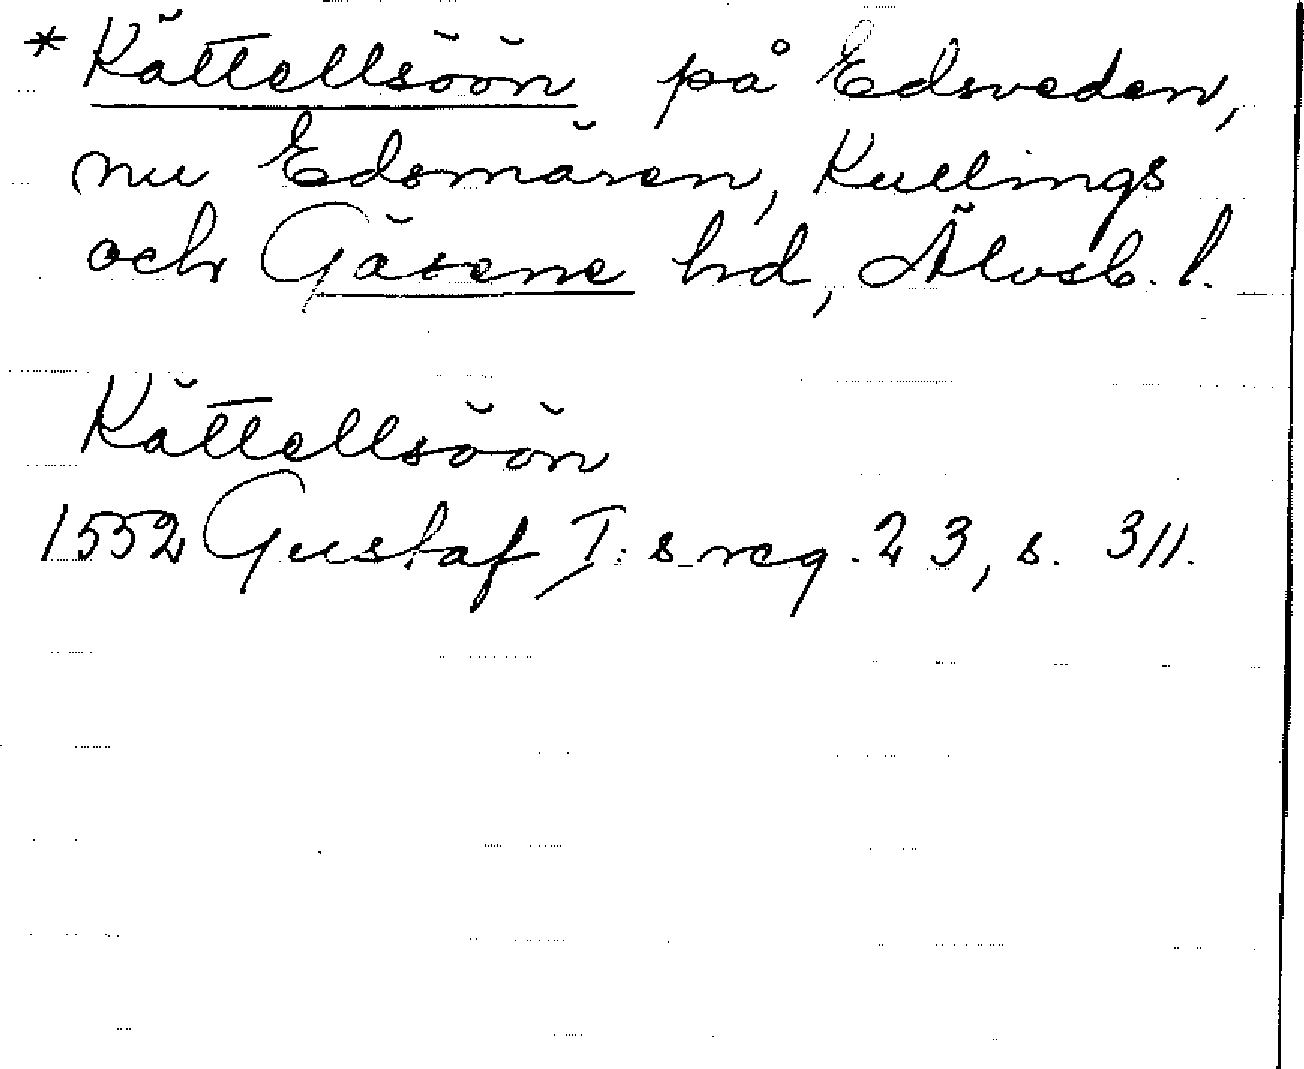 * Kättellsöön på Edsveden,
nu Edsmären, Kullings
och Gäsene hd, Älvsb. l.
Kättellsöön
1552 Gustaf I:s reg. 23, s. 311.